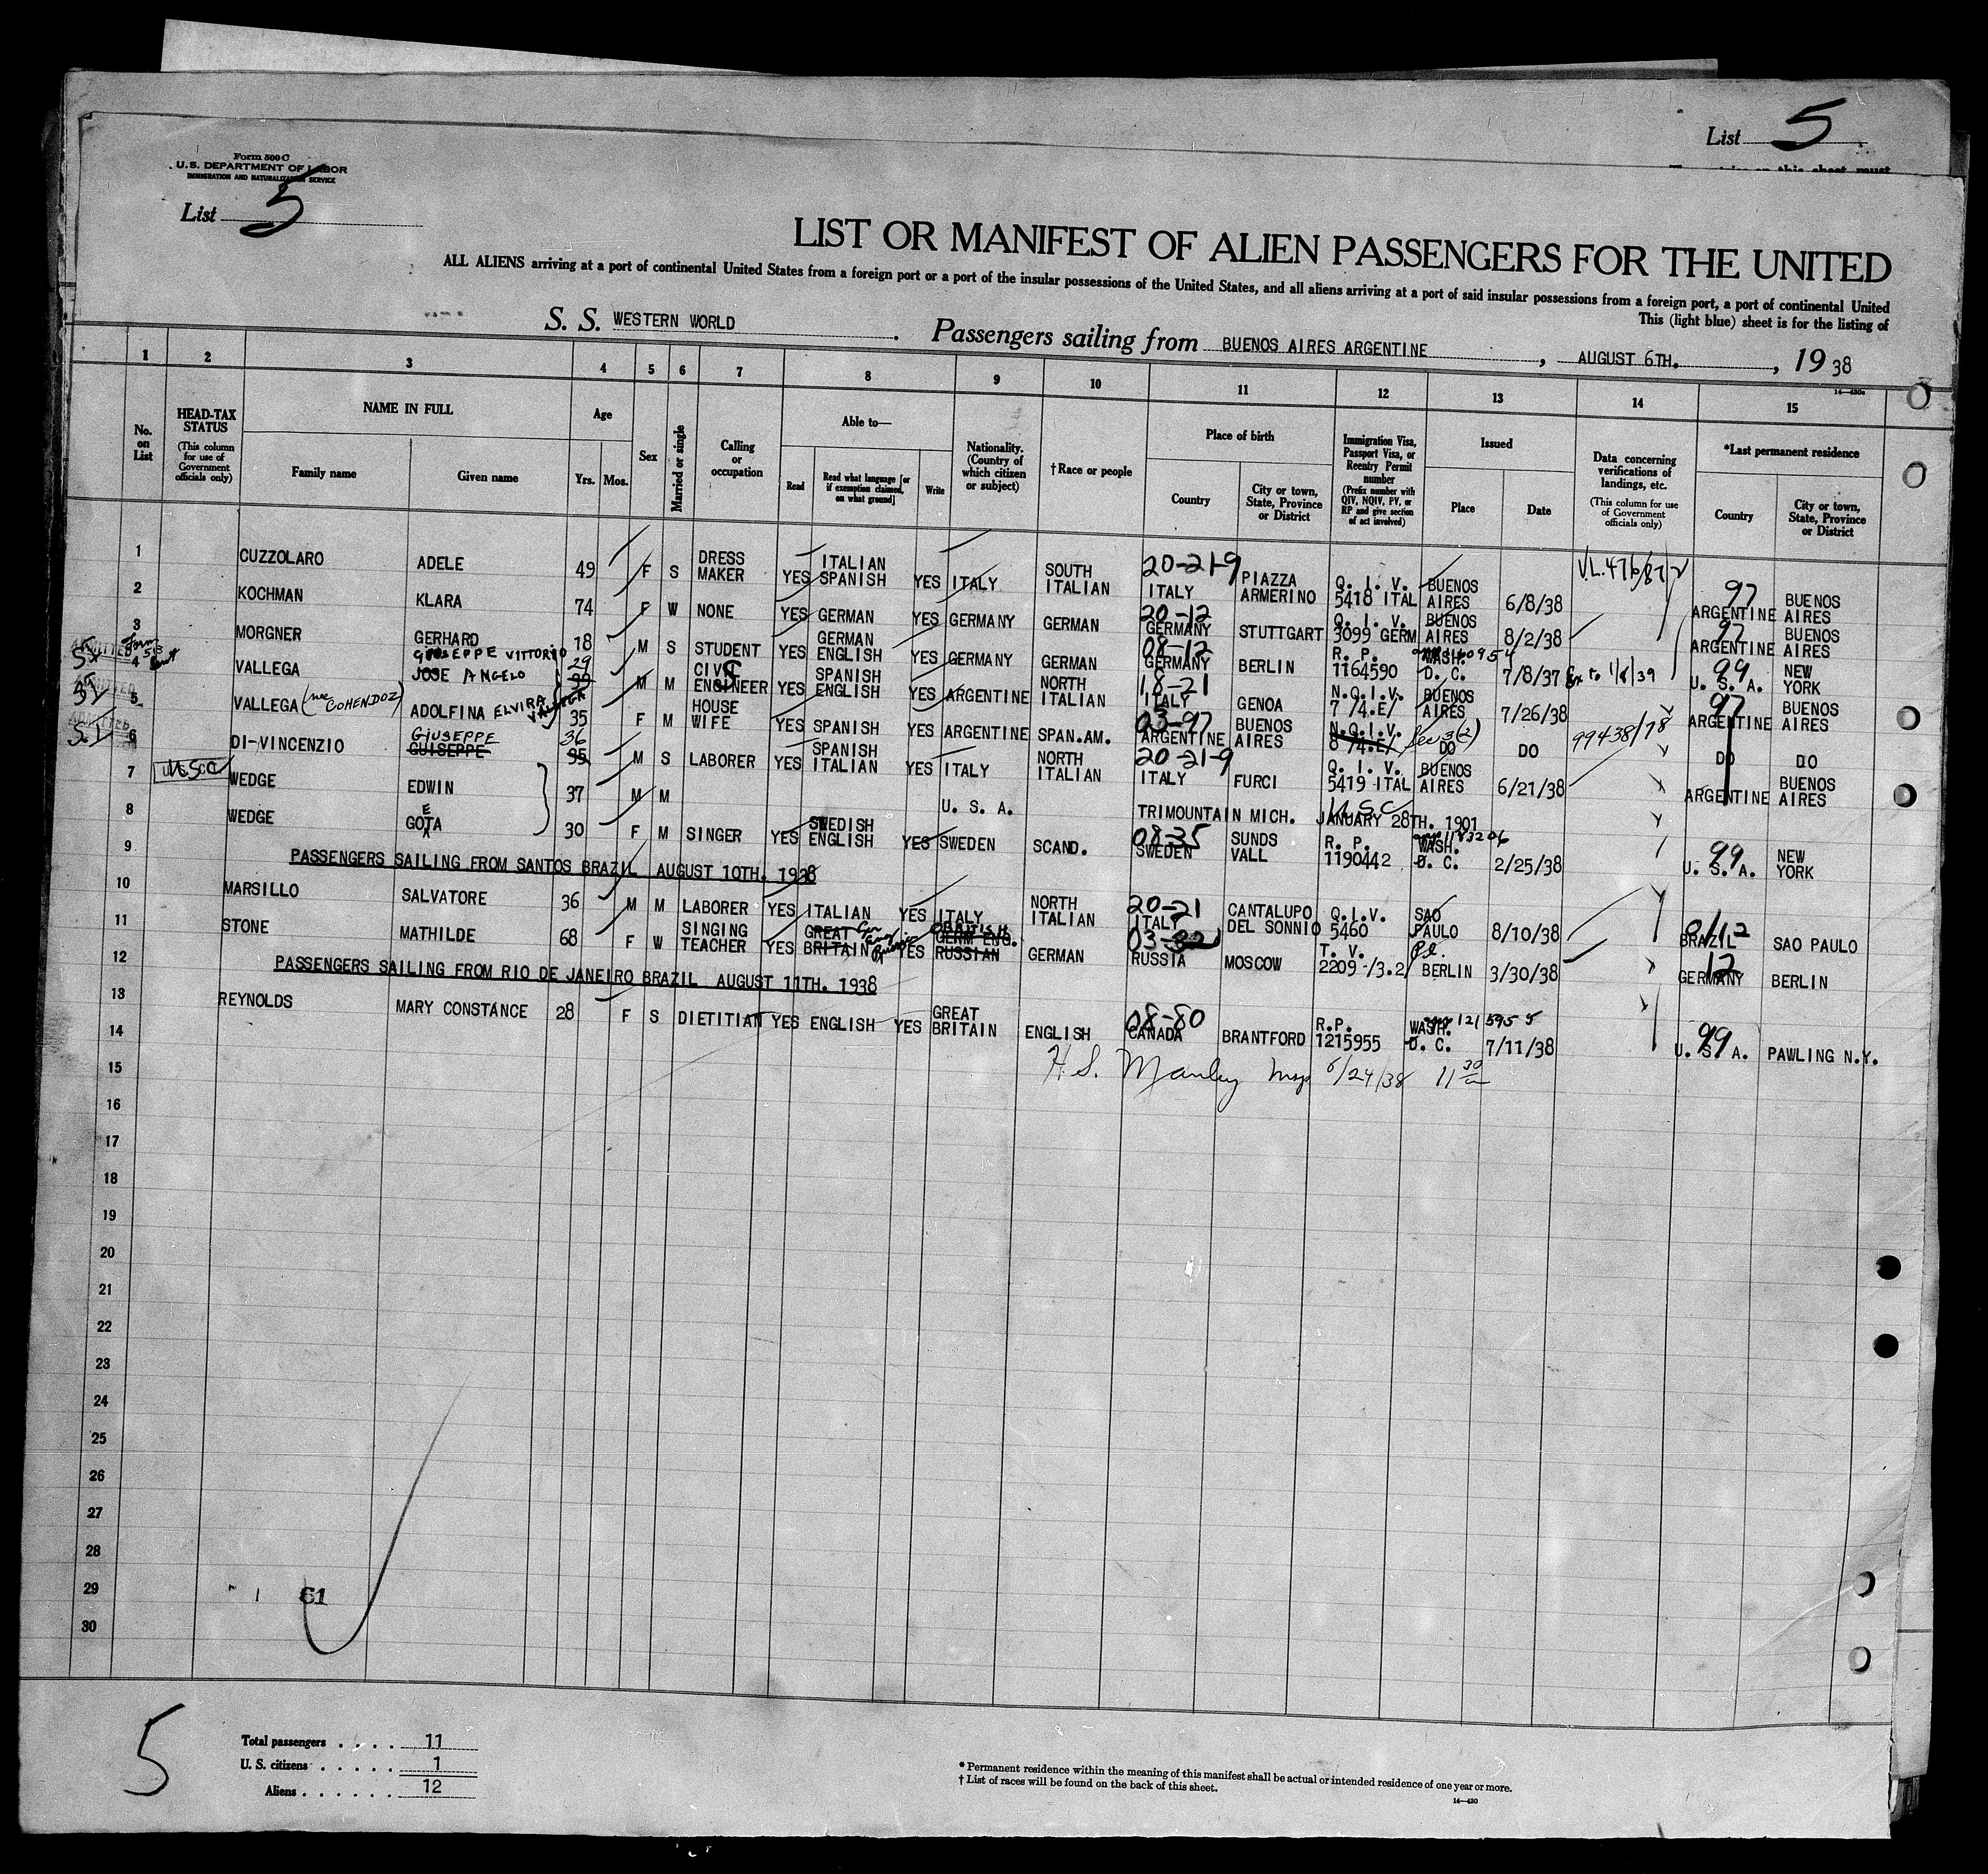 List 5
Form 500 C
U.S. DEPARTMENT OF LABOR
IMMIGRATION AND NATURALIZATION SERVICE
List 5
LIST OR MANIFEST OF ALIEN PASSENGERS FOR THE UNITED
ALL ALIENS arriving at a port of continental United States from a foreign port or a port of the insular possessions of the United States, and all aliens arriving at a port of said insular possessions from a foreign port, a port of continental United
This (light blue) sheet is for the listing of
S. S. WESTERN WORLD. Passengers sailing from BUENOS AIRES ARGENTINE, AUGUST 6TH., 1938
1 2 3 4 5 6 7 8 9 10 11 12 13 14 15
No. on List
HEAD-TAX STATUS (This column for use of Government officials only)
NAME IN FULL
Family name
Given name
Age
Yrs. Mos.
Sex
Married or single
Calling or occupation
Able to—
Read
Read what language [or if exemption claimed, on what ground]
Write
Nationality. (Country of which citizen or subject)
†Race or people
Place of birth
Country
City or town, State, Province or District
Immigration Visa, Passport Visa, or Reentry Permit number (Prefix number with QIV, NQIV, PV, or RP and give section of act involved)
Issued
Place
Date
Data concerning verifications of landings, etc. (This column for use of Government officials only)
*Last permanent residence
Country
City or town, State, Province or District
1 CUZZOLARO ADELE 49 F S DRESS MAKER YES ITALIAN SPANISH YES ITALY SOUTH ITALIAN 20-21-9 ITALY PIAZZA ARMERINO Q. I. V. 5418 ITAL BUENOS AIRES 6/8/38 97 ARGENTINE BUENOS AIRES
2 KOCHMAN KLARA 74 F W NONE YES GERMAN YES GERMANY GERMAN 20-12 GERMANY STUTTGART Q. I. V. 3099 GERM BUENOS AIRES 8/2/38 97 ARGENTINE BUENOS AIRES
3 MORGNER GERHARD 18 M S STUDENT YES GERMAN ENGLISH YES GERMANY GERMAN 08-12 GERMANY BERLIN R. P. 1164590 WASH. D. C. 7/8/37 Ex to 1/8/39 99 U. S. A. NEW YORK
4 VALLEGA GIUSEPPE VITTORIO JOSE ANGELO 29 39 M M CIVIL ENGINEER YES SPANISH ENGLISH YES ARGENTINE NORTH ITALIAN 18-21 ITALY GENOA N.Q.I.V. 7 /4.E/ BUENOS AIRES 7/26/38 97 ARGENTINE BUENOS AIRES
5 VALLEGA (nee COHENDOZ) ADOLFINA ELVIRA VALLEGA 35 F M HOUSE WIFE YES SPANISH YES ARGENTINE SPAN.AM. 03-97 ARGENTINE BUENOS AIRES N.Q.I.V. 8 /4.E/ Sec 3(2) DO DO 99438/78 DO DO
6 DI-VINCENZIO GIUSEPPE GUISEPPE 36 35 M S LABORER YES SPANISH ITALIAN YES ITALY NORTH ITALIAN 20-21-9 ITALY FURCI Q. I. V. 5419 ITAL BUENOS AIRES 6/21/38 ARGENTINE BUENOS AIRES
7 USC WEDGE EDWIN 37 M M U. S. A. TRIMOUNTAIN MICH. JANUARY 28TH. 1901 U.S.C.
8 WEDGE GOTA 30 F M SINGER YES SWEDISH ENGLISH YES SWEDEN SCAND. 08-35 SWEDEN SUNDS VALL R. P. 1190442 WASH. D. C. 2/25/38 99 U. S. A. NEW YORK
9 PASSENGERS SAILING FROM SANTOS BRAZIL AUGUST 10TH. 1938
10 MARSILLO SALVATORE 36 M M LABORER YES ITALIAN YES ITALY NORTH ITALIAN 20-21 ITALY CANTALUPO DEL SONNIO Q.I.V. 5460 SAO PAULO 8/10/38 BRAZIL SAO PAULO
11 STONE MATHILDE 68 F W SINGING TEACHER YES GREAT BRITAIN YES BRITISH GERM ENG. RUSSIAN GERMAN RUSSIA MOSCOW T. V. 2209 /3.2/ BERLIN 3/30/38 12 GERMANY BERLIN
12 PASSENGERS SAILING FROM RIO DE JANEIRO BRAZIL AUGUST 11TH. 1938
13 REYNOLDS MARY CONSTANCE 28 F S DIETITIAN YES ENGLISH YES GREAT BRITAIN ENGLISH 08-80 CANADA BRANTFORD R.P. 1215955 WASH. D. C. 7/11/38 99 U. S. A. PAWLING N.Y.
14
H. S. Manley Insp 6/24/38 11 30
15
16
17
18
19
20
21
22
23
24
25
26
27
28
29
61
30
5
Total passengers . . . . 11
U. S. citizens . . . . . 1
Aliens . . . . . . 12
* Permanent residence within the meaning of this manifest shall be actual or intended residence of one year or more.
† List of races will be found on the back of this sheet.
14—430